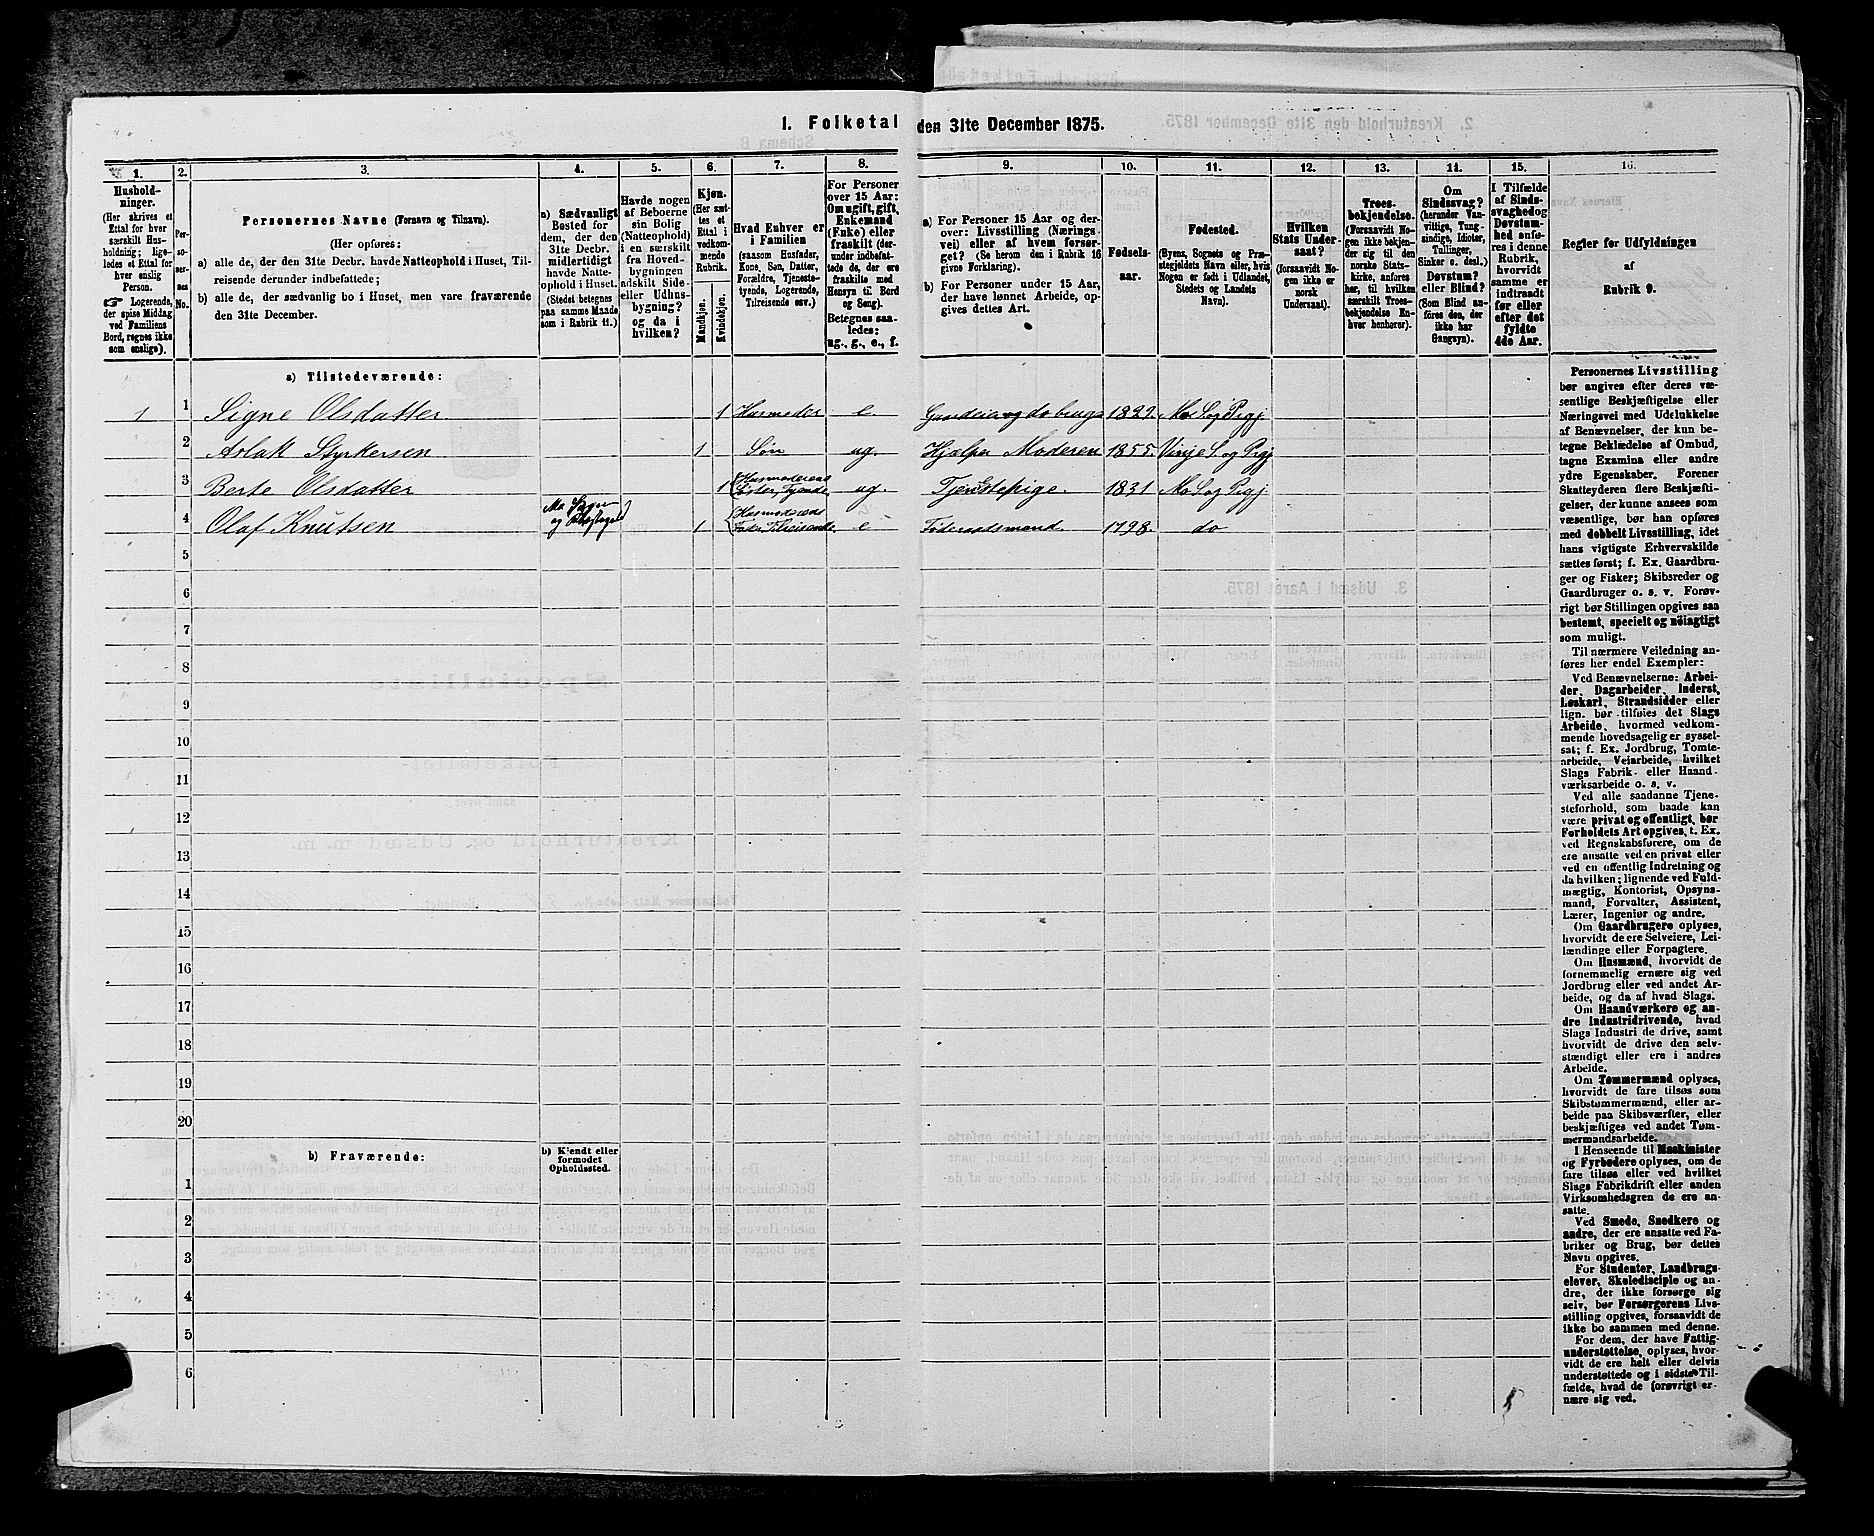 1. Folketal den 31te December 1875.
1.
2.
3.
4.
5.
6.
7.
8.
9.
10.
11.
12.
13.
14.
15.
16.
Hushold-
ninger.
(Her skrives et
Ettal for hver
særskilt Hus-
holdning; lige-
ledes et Ettal for
hver enslig
Person.
☛ Logerende,
der spise Middag
ved Familiens
Bord, regnes ikke
som enslige).
Per-
so-
ner-
nes
No.
Personernes Navne (Fornavn og Tilnavn).
(Her opføres:
a) alle de, der den 31te Decbr. havde Natteophold i Huset, Til-
reisende derunder indbefattede;
b) alle de, der sædvanlig bo i Huset, men vare fraværende
den 31te December.
a) Sædvanligt
Bosted for
dem, der den
31te Decbr.
midlertidigt
havde Natte-
ophold i Huset.
(Stedet betegnes
paa samme Maade
som i Rubrik 11.)
Havde nogen
af Beboerne
sin Bolig
(Natteophold)
i en særskilt
fra Hoved-
bygningen
adskilt Side-
eller Udhus-
bygning?
og da i
hvilken?
Kjøn.
(Her sæt-
tes et
Ettal i
vedkom-
mende
Rubrik.
Mandkjøn.
Kvindekjøn.
Hvad Enhver er
i Familien
(saasom Husfader,
Kone, Søn, Datter,
Forældre, Tjeneste-
tyende, Logerende,
Tilreisende osv.)
For Personer
over 15 Aar:
Om ugift, gift,
Enkemand
(Enke) eller
fraskilt (der-
under indbefat-
tede de, der ere
fraskilte med
Hensyn til Bord
og Seng).
Betegnes saa-
ledes:
ug., g., e., f.
a) For Personer 15 Aar og der-
over: Livsstilling (Nærings-
vei) eller af hvem forsør-
get? (Se herom den i Rubrik 16
givne Forklaring).
b) For Personer under 15 Aar,
der have lønnet Arbeide, op-
gives dettes Art.
Fødsels-
aar.
Fødested.
(Byens, Sognets og Præ-
stegjeldets Navn eller, hvis
Nogen er født i Udlandet,
Stedets og Landets
Navn).
Hvilken
Stats Under-
saat?
(forsaavidt No-
gen ikke er
norsk
Undersaat).
Troes-
bekjendelse.
(Forsaavidt No-
gen ikke bekjen-
der sig til den
norske Stats-
kirke, anføres
her, til hvilken
særskilt Troes-
bekjendelse En-
hver henhører).
Om
Sindssvag?
(herunder Van-
vittige, Tung-
sindige, Idioter,
Tullinger,
Sinker o. desl.)
Døvstum?
eller Blind?
(Som Blind an-
føres den, der
ikke har
Gangsyn).
I Tilfælde
af Sinds-
svaghed og
Døvstum-
hed anfø-
res i denne
Rubrik,
hvorvidt
samme er
indtraadt
før eller
efter det
fyldte
4de Aar.
Regler for Udfyldningen
af
Rubrik 9.
a) Tilstedeværende:
1 1 Signe Olsdatter 1 Husmoder e Gaardeier og do bruger 1822. Mo S. og Prgj.
2 Aslak Styrkersen 1 Søn ug. Hjælper Moderen 1855. Vinje S. og Prgj
3 Berte Olsdatter 1 Husmoderens Søster, Tyende ug. Tjenestepige. 1831 Mo S. og Prgj.
4 Olaf Knutsen Mo Sogn og 1 Husmoderens Fader Tilreisende. e Föderaadsmand. 1798. do
5
6
7
8
9
10
11
12
13
14
15
16
17
18
19
20
b) Fraværende:
b) Kjendt eller
formodet
Opholdssted.
1
2
3
4
5
6
Personernes Livsstilling
bør angives efter deres væ-
sentlige Beskjæftigelse eller
Næringsvei med Udelukkelse
af Benævnelser, der kun be-
tegne Beklædelse af Ombud,
tagne Examina eller andre
ydre Egenskaber. Forener
Skatteyderen flere Beskjæfti-
gelser, der kunne ansees som
væsentlige, bør han opføres
med dobbelt Livsstilling, idet
hans vigtigste Erhvervskilde
sættes først; f. Ex. Gaardbru-
ger og Fisker; Skibsreder og
Gaardbruger o. s. v. Forøv-
rigt bør Stillingen opgives saa
bestemt, specielt og nöiagtigt
som muligt.
Til nærmere Veiledning an-
føres her endel Exempler:
Ved Benævnelserne: Arbei-
der, Dagarbeider, Inderst,
Løskarl, Strandsidder eller
lign. bør tilføies det Slags
Arbeide, hvormed vedkom-
mende hovedsagelig er syssel-
sat; f. Ex. Jordbrug, Tomte-
arbeide, Veiarbeide, hvilket
Slags Fabrik- eller Haand-
værksarbeide o. s. v.
Ved alle saadanne Tjene-
steforhold, som baade kan
være privat og offentligt, bør
Forholdets Art opgives, t. Ex.
ved Regnskabsførere, om de
ere ansatte ved en privat eller
ved en offentlig Indretning og
da hvilken; lignende ved Fuld-
mægtig, Kontorist, Opsyns-
mand, Forvalter, Assistent,
Lærer, Ingeniør og andre.
Om Gaardbrugere oplyses,
hvorvidt de ere Selveiere, Lei-
lændinge eller Forpagtere.
Om Husmænd, hvorvidt de
fornemmelig ernære sig ved
Jordbrug eller ved andet Ar-
beide, og da af hvad Slags.
Om Haandværkere og an-
dre Industridrivende, hvad
Slags Industri de drive, samt
hvorvidt de drive den selv-
stændigt eller ere i andres
Arbeide.
Om Tømmermænd oplyses,
hvorvidt de fare tilsøs som
Skibstømmermænd, eller ar-
beide paa Skibsværfter, eller
beskjæftiges ved andet Tøm-
mermandsarbeide.
I Henseende til Maskinister
og Fyrbødere oplyses, om de
fare tilsøs eller ved hvilket
Slags Fabrikdrift eller anden
Virksomhedsgren de ere an-
satte.
Ved Smede, Snedkere og
andre, der ere ansatte ved Fa-
briker og Brug, bør dettes
Navn opgives.
For Studenter, Landbrugs-
elever, Skoledisciple og an-
dre, der ikke forsørge sig
selv, bør Forsørgerens Livs-
stilling opgives, forsaavidt de
ikke bo sammen med denne.
For dem, der have Fattig-
understøttelse, oplyses, hvor-
vidt de ere helt eller delvis
understøttede og i sidste Til-
fælde, hvad de forøvrigt er-
nære sig ved.